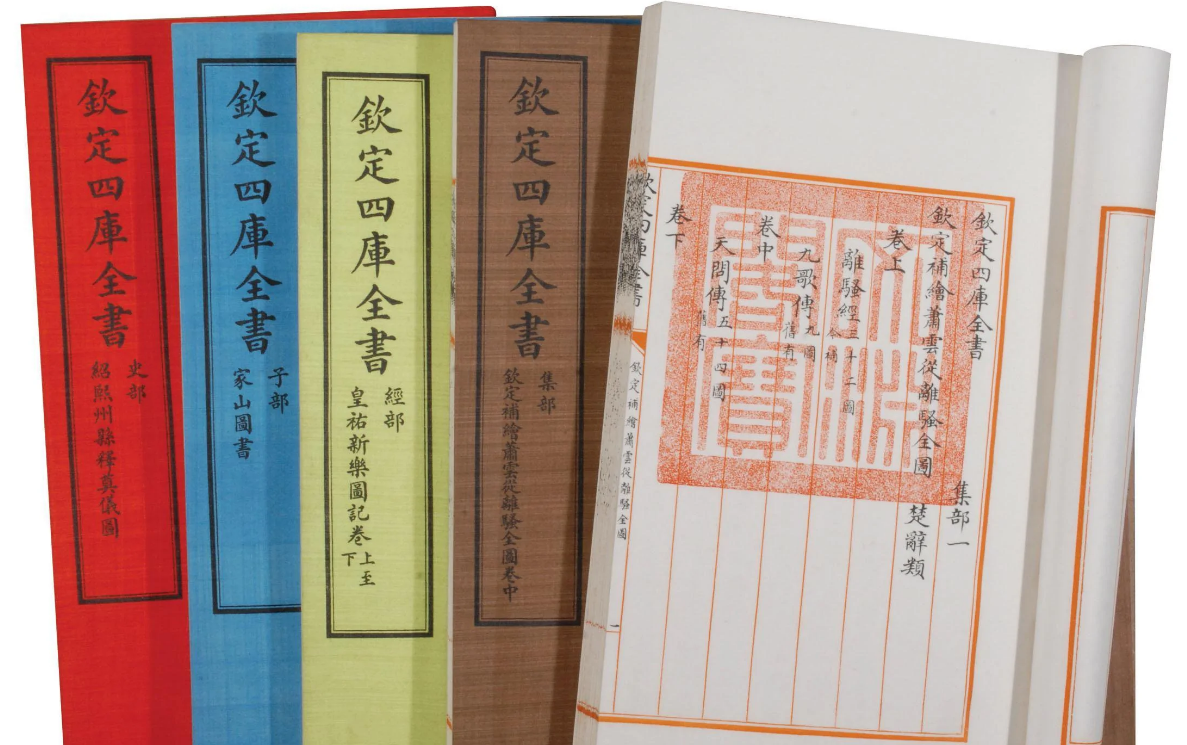 欽定四庫全書
史部
紹熙州縣釋奠儀圖
欽定四庫全書
子部
家山圖書
欽定四庫全書
經部
皇祐新樂圖記卷上至下
欽定四庫全書
集部
欽定補繪蕭雲從離騷全圖卷中
欽定四庫全書 集部一
欽定補繪蕭雲從離騷全圖 楚辭類
卷上
離騷經三十二圖今補
九歌傳九圖舊有
卷中
天問傳五十四圖舊有
卷下
欽定四庫全書
欽定補繪蕭雲從離騷全圖
一